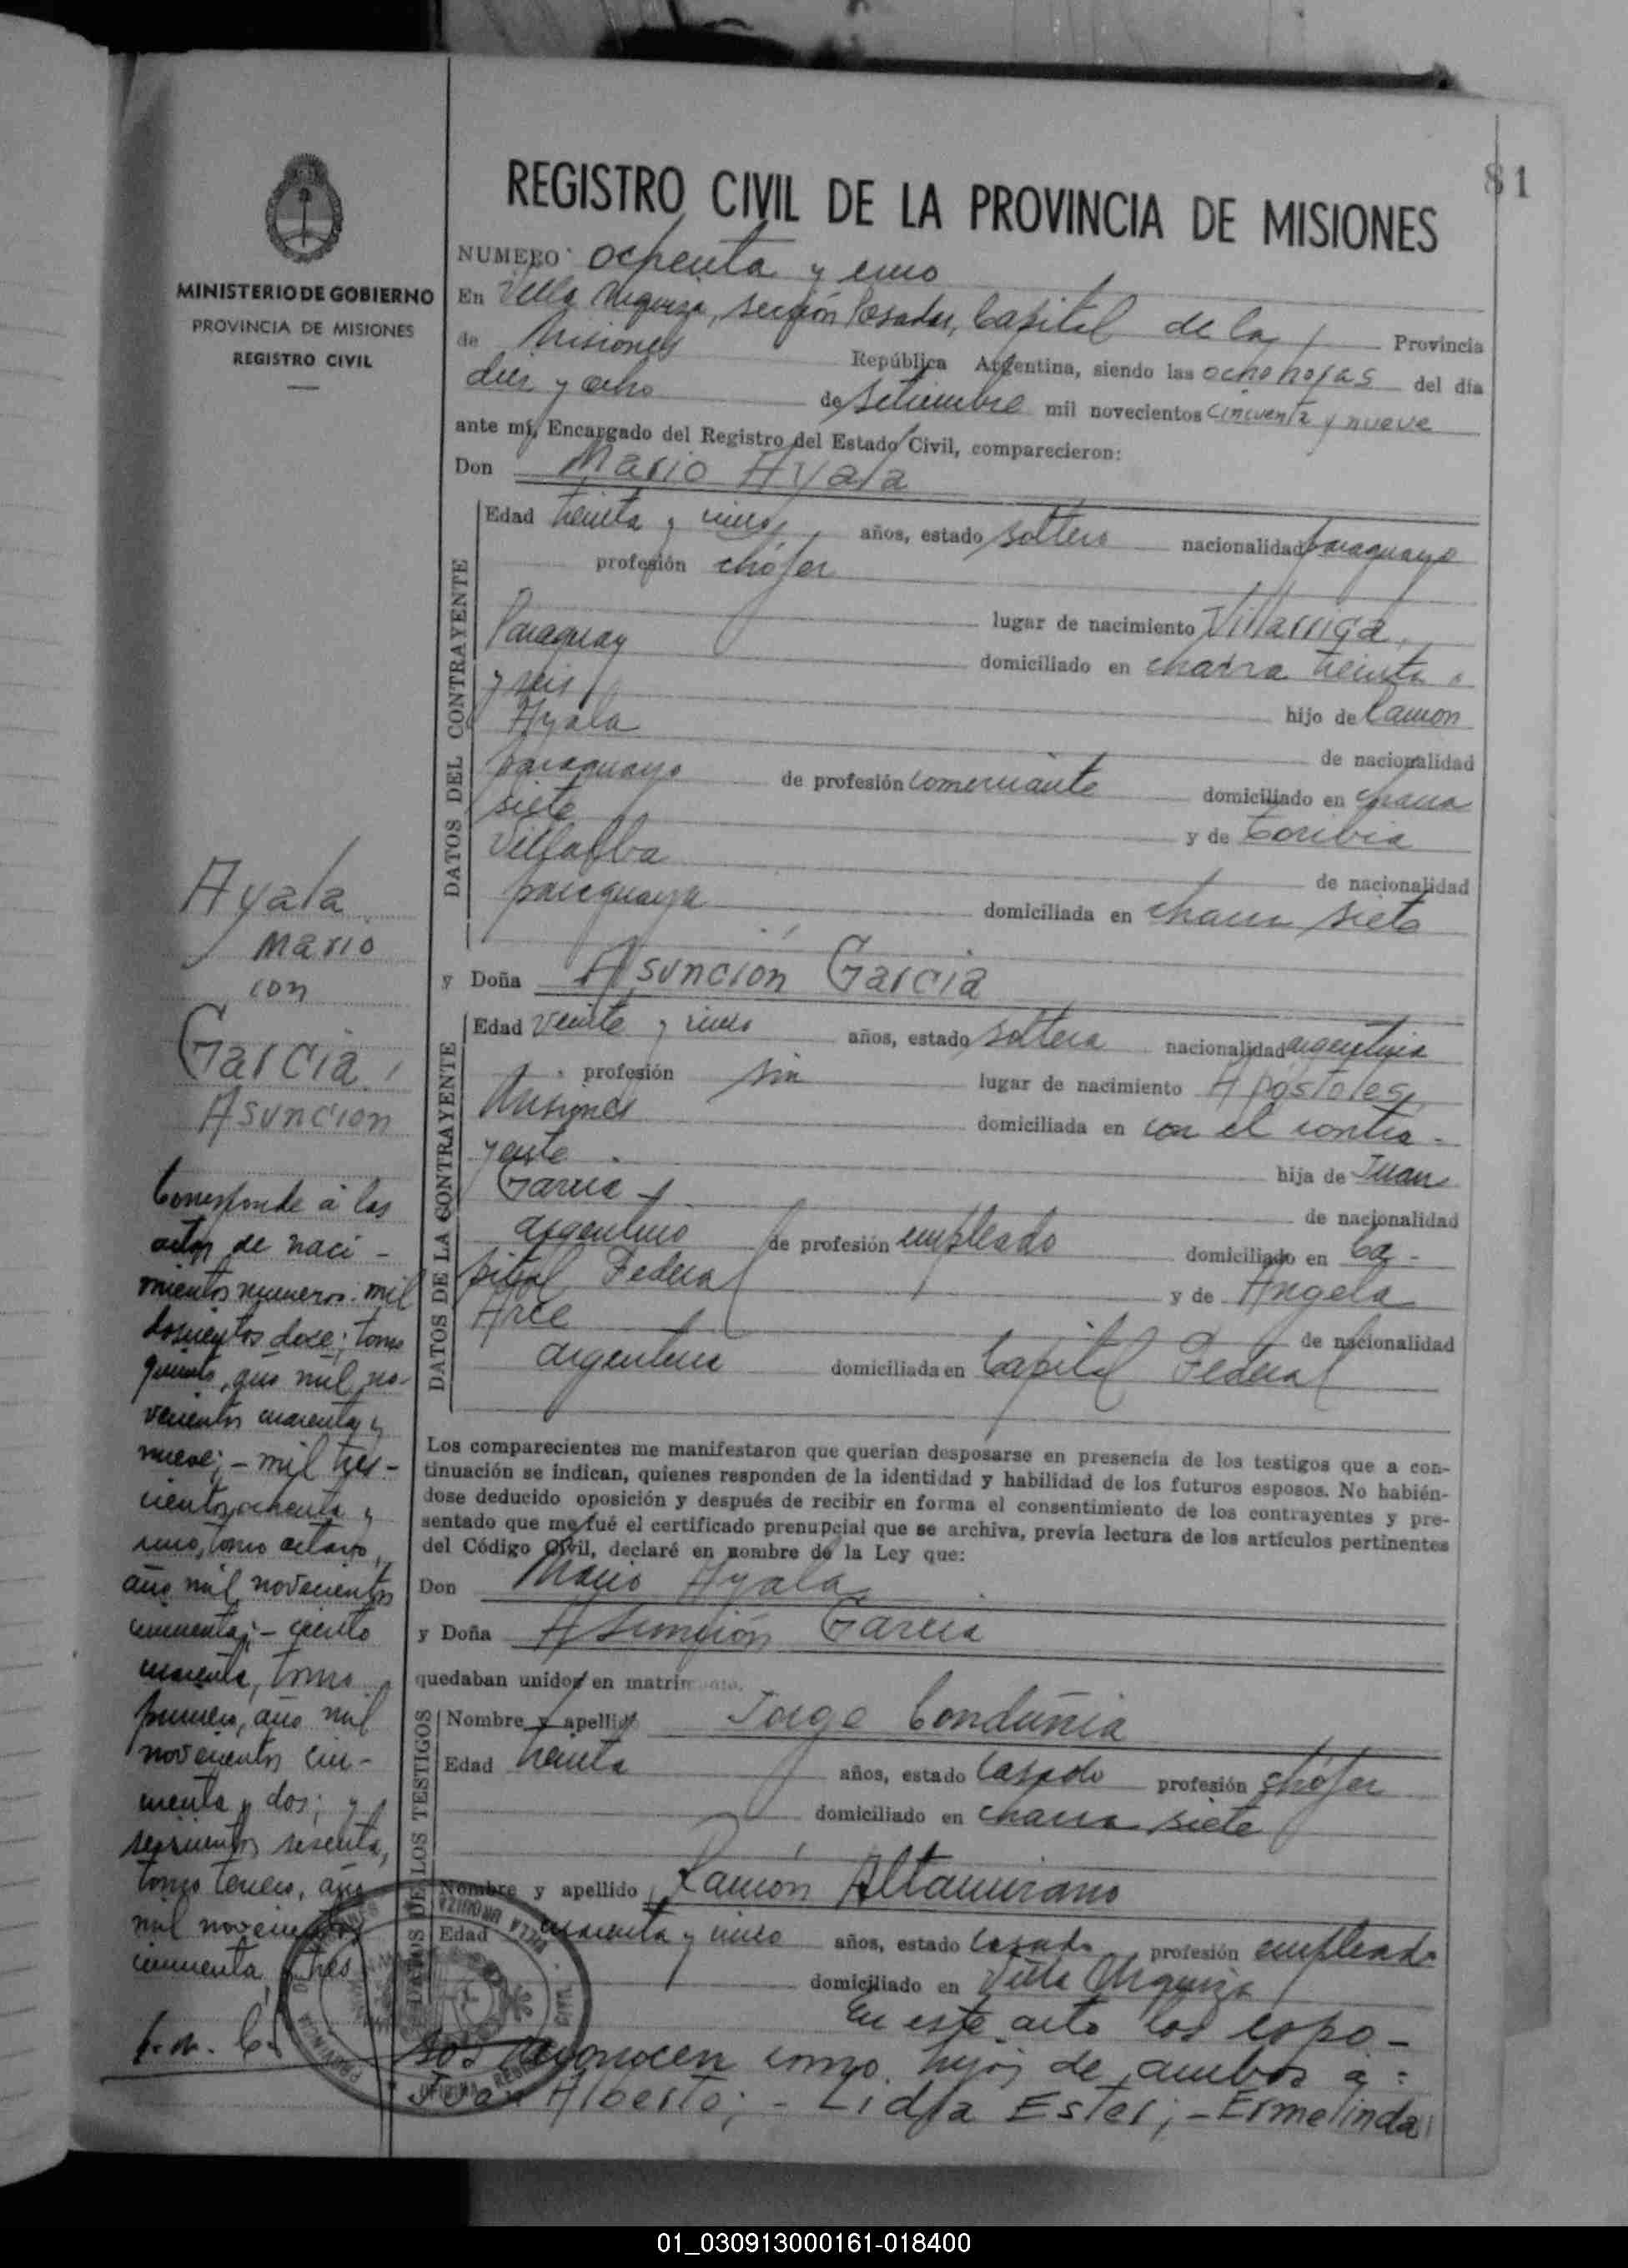 81
REGISTRO CIVIL DE LA PROVINCIA DE MISIONES
MINISTERIO DE GOBIERNO
PROVINCIA DE MISIONES
REGISTRO CIVIL
NUMERO ochenta y uno
En Villa Urquiza, sección Posadas, Capital de la Provincia
de Misiones República Argentina, siendo las ocho horas del día
diez y ocho de setiembre mil novecientos cincuenta y nueve
ante mí, Encargado del Registro del Estado Civil, comparecieron:
Don Mario Ayala
DATOS DEL CONTRAYENTE
Edad treinta y cinco años, estado soltero nacionalidad paraguayo
profesión chófer
lugar de nacimiento Villarriga,
Paraguay domiciliado en chacra treinta
y seis hijo de Ramon
Ayala de nacionalidad
paraguayo de profesión comerciante domiciliado en chacra
siete y de Toribia
Villalba de nacionalidad
paraguaya domiciliada en chacra siete
y Doña Asuncion Garcia
DATOS DE LA CONTRAYENTE
Edad veinte y cinco años, estado soltera nacionalidad argentina
profesión sin lugar de nacimiento Apóstoles,
Misiones domiciliada en con el contra-
yente hija de Juan
Garcia de nacionalidad
argentino de profesión empleado domiciliado en Ca-
pital Federal y de Angela
Arce de nacionalidad
argentina domiciliada en Capital Federal
Los comparecientes me manifestaron que querían desposarse en presencia de los testigos que a con-
tinuación se indican, quienes responden de la identidad y habilidad de los futuros esposos. No habién-
dose deducido oposición y después de recibir en forma el consentimiento de los contrayentes y pre-
sentado que me fué el certificado prenupcial que se archiva, previa lectura de los artículos pertinentes
del Código Civil, declaré en nombre de la Ley que:
Don Mario Ayala
y Doña Asunción Garcia
quedaban unidos en matrimonio.
DATOS DE LOS TESTIGOS
Nombre y apellido Jorge
Edad treinta años, estado casado profesión chófer
domiciliado en chacra siete
Nombre y apellido Ramón Altamirano
Edad cuarenta y cinco años, estado casado profesión empleado
domiciliado en Villa Urquiza
En este acto los espo-
sos reconocen como hijos de ambos a:
Juan Alberto; - Lidia Ester; - Ermelinda
Ayala
Mario
con
Garcia
Asuncion
Corresponde a las
actas de naci-
mientos numeros: mil
doscientos doce; tomo
quinto, año mil no-
vecientos cuarenta y
nueve; - mil tres-
cientos ochenta y
uno, tomo octavo,
año mil novecientos
cincuenta; - ciento
cuarenta, tomo
primero, año mil
novecientos cin-
cuenta y dos; y
seiscientos sesenta,
tomo tercero, año
mil novecientos
cincuenta y tres
VILLA URQUIZA
PROVINCIA
01_030913000161-018400